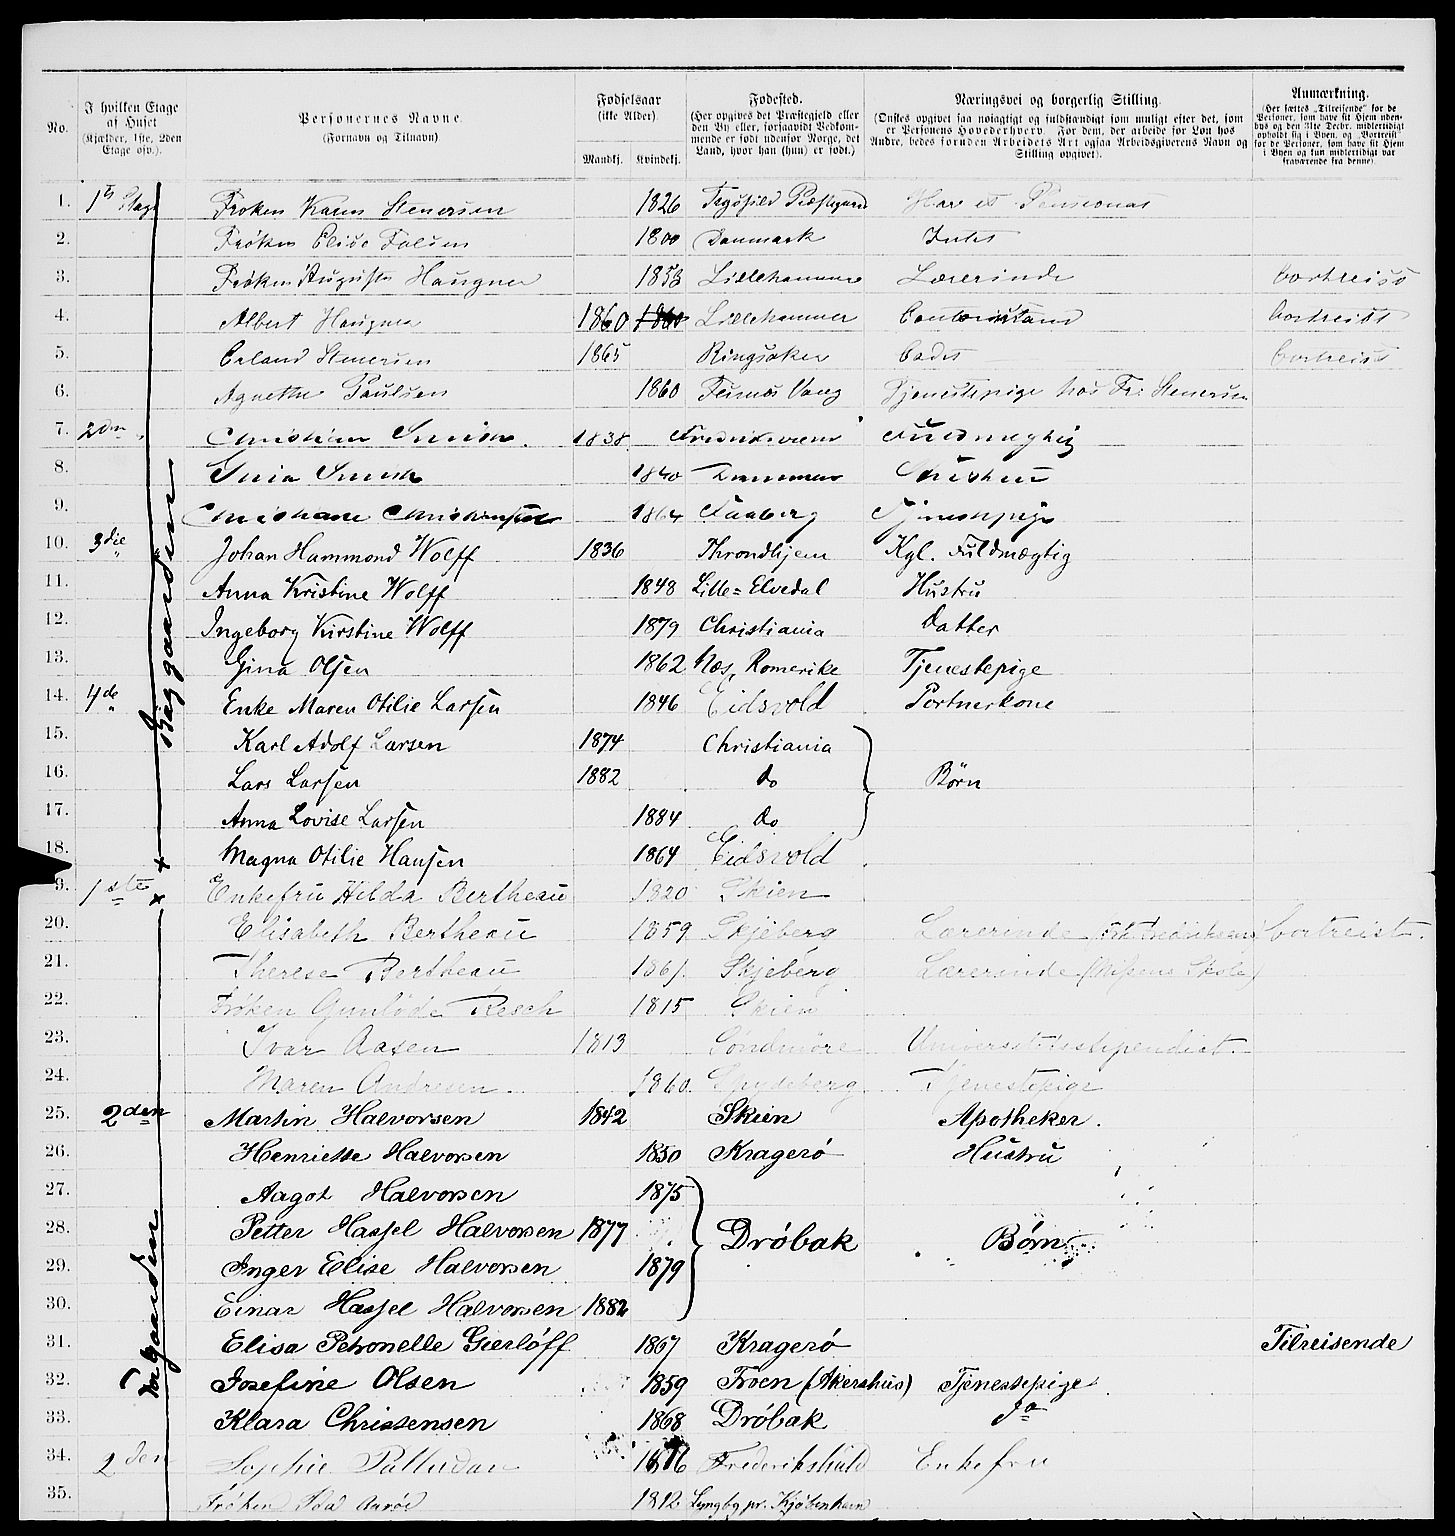 No. I hvilken Etage af Huset (Kjælder, 1ste, 2den Etage osv.). Personernes Navne. (Fornavn og Tilnavn) Fødselsaar (ikke Alder). Mandkj. Kvindekj. Fødested. (Her opgives det Præstegjeld eller den By eller, forsaavidt Vedkommende er født udenfor Norge, det Land, hvor han (hun) er født.) Næringsvei og borgerlig Stilling. (Ønskes opgivet saa nøiagtigt og fuldstændigt som muligt efter det, som er Personens Hovederhverv. For dem, der arbeide for Løn hos Andre, bedes foruden Arbeidets Art ogsaa Arbeidsgiverens Navn og Stilling opgivet). Anmærkning. (Her sættes „Tilreisende“ for de Personer, som have sit Hjem udenbys og den 31te Decbr. midlertidigt ophold sig i Byen, og „Bortreist“ for de Personer, som have sit Hjem i Byen og kun midlertidigt var fraværende fra denne).
1. 1ste Etage Frøken Karen Stenersen 1826 Trysild Præstegjeld Har et Pensionat
2. Frøken Elise Falsen 1800 Danmark Intet
3. Frøken Auguste Haugner 1853 Lillehammer Lærerinde bortreist
4. Albert Haugner 1860 1860 Lillehammer bortreist
5. Erland Stenersen 1865 Ringsaker Cadet bortreist
6. Agnethe Paulsen 1860 Vang Tjenestepige hos Fr: Stenersen
7. 2den Christian Smith 1838 Fredriksværn Fuldmægtig
8. Smith 1840 Drammen Hustru
9. Christiane Christensen 1864 Faaberg Tjenestepige
10. 3die Johan Hammond Wolff 1836 Throndhjem Kgl. Fuldmægtig
11. Anna Kristine Wolff 1848 Lille=Elvedal Hustru
12. Ingeborg Kirstine Wolff 1879 Christiania Datter
13. Gina Olsen 1862 Næs, Romerike Tjenestepige
14. 4de Enke Maren Otilie Larsen 1846 Eidsvold Portnerkone
15. Karl Adolf Larsen 1874 Christiania
16. Lars Larsen 1882 do Børn
17. Anna Lovise Larsen 1884 do
18. Magna Otilie Hansen 1864 Eidsvold
Baggaarden
9. 1ste Enkefru Hilda Bertheau 1820 Skien
20. Elisabeth Bertheau 1859 Skjeberg Lærerinde bortreist.
21. Therese Bertheau 1861 Skjeberg Lærerinde (Nissens Skole)
22. Frøken Gunløde Resch 1815 Skien
23. Ivar Aasen 1813 Søndmøre Universitetsstipendiat.
24. Maren Andresen 1860 Spydeberg Tjenestepige
25. 2den Martin Halvorsen 1842 Skien Apotheker.
26. Henriette Halvorsen 1850 Kragerø Hustru
27. Aagot Halvorsen 1875
28. Petter Hassel Halvorsen 1877 Drøbak Børn
29. Inger Elise Halvorsen 1879
30. Einar Hassel Halvorsen 1882
31. Elisa Petronelle Gierløff 1867 Kragerø Tilreisende
32. Josefine Olsen 1859 Froen (Akershus) Tjenestepige
33. Klara Christensen 1868 Drøbak do
Forgaarden
34. 2den Sophie Palludan Frederikshald Enkefru
35. Frøken Ida Aarøe 1812 Lyngby pr. Kjøbenhavn